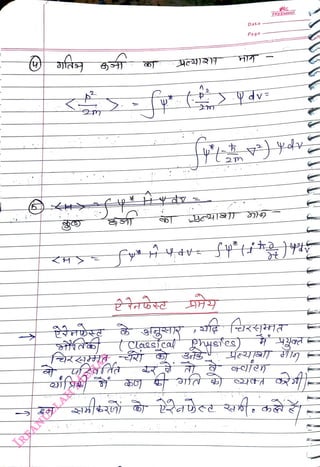 Date
Page
④ गतिज ऊर्जा का प्रत्याशा मान -
< p²/2m > = ∫ψ* (p̂²/2m) ψ dv =
∫ψ* (-ħ/2m ∇²) ψ dv
⑤ <H> = ∫ψ* Ĥ ψ dv =
कुल ऊर्जा का प्रत्याशा मान -
<H> = ∫ψ* Ĥ ψ dv = ∫ψ* (iħ ∂/∂t) ψ dv
ऐरेनफेस्ट प्रमेय
→ ऐरेनफेस्ट के अनुसार, यदि चिरसम्मत
भौतिकी (Classical Physics) में प्रयुक्त
चिरसम्मत चरों को उनके प्रत्याशा मान
से परिवर्तित कर दे तो वे क्वांटम
यांत्रिकी में कण की गति को व्यक्त करेगी।
→ इन समीकरणों को ऐरेनफेस्ट समी. कहते हैं।